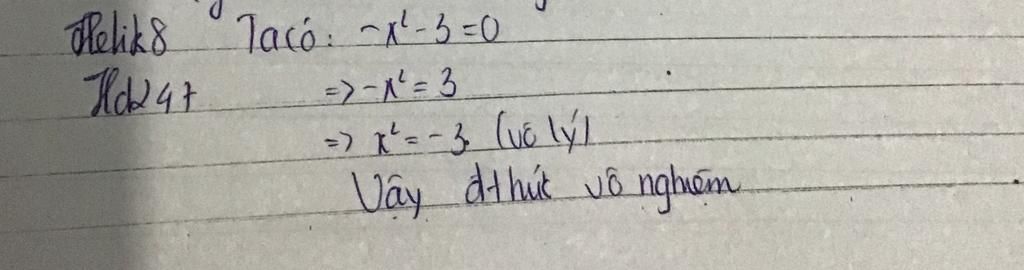 Helik8 Ta có: -x² - 3 = 0
Hd247 => -x² = 3
=> x² = -3 (vô lý)
Vậy đthức vô nghiệm